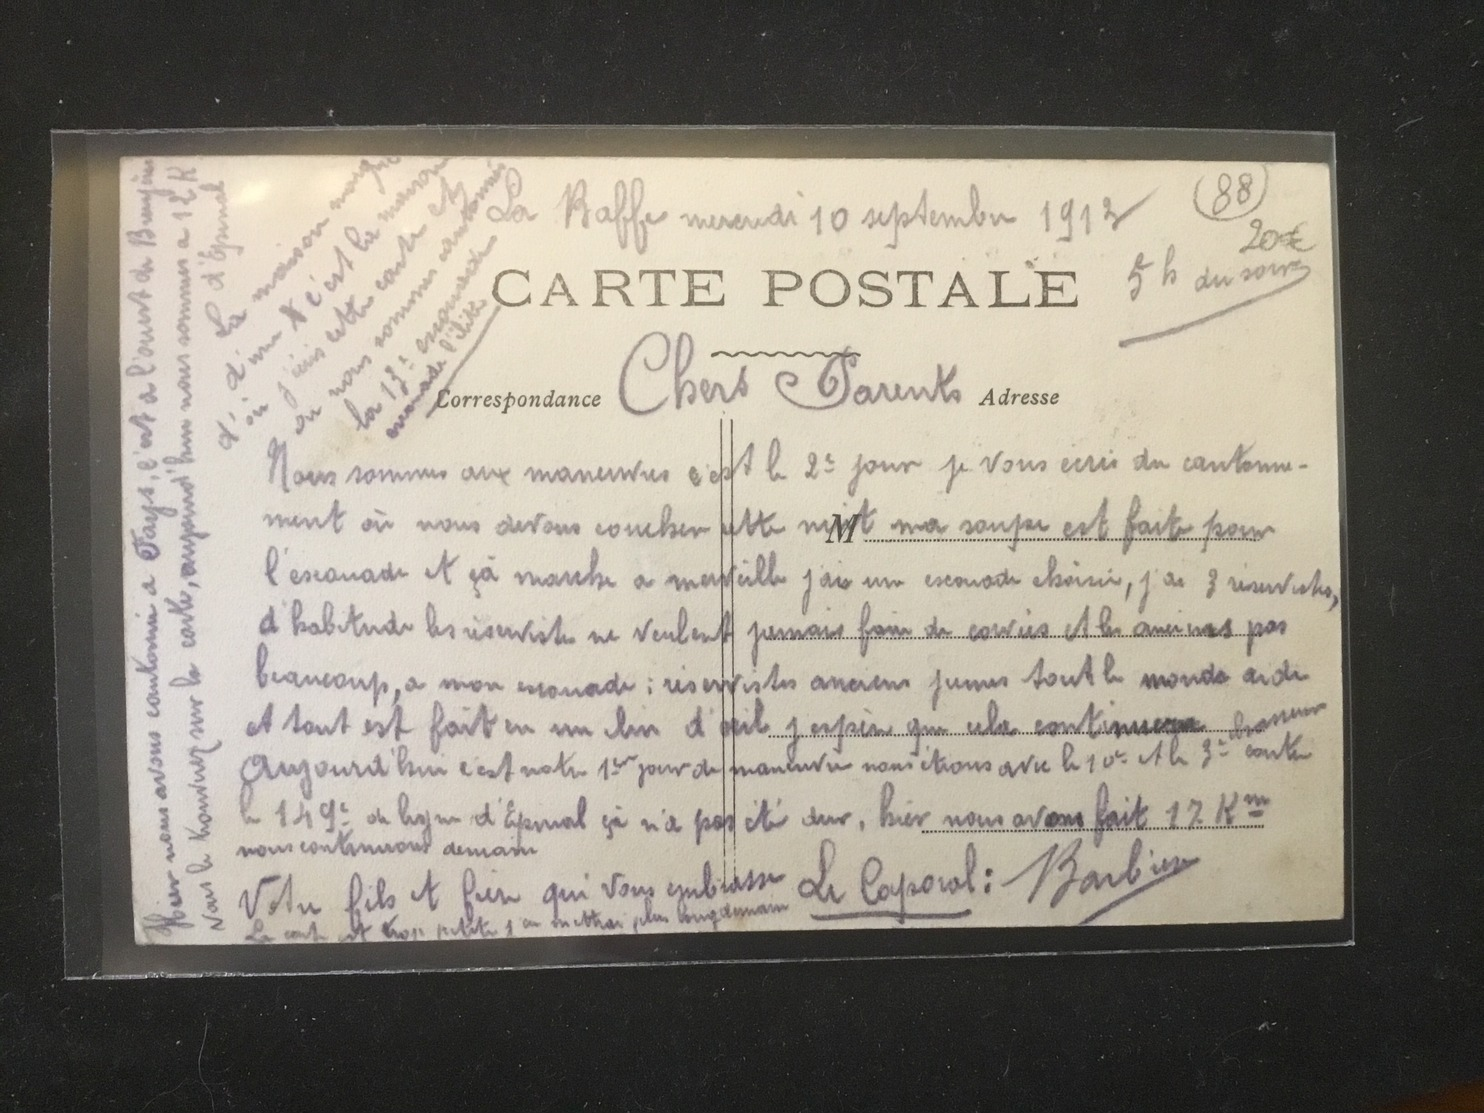 La Baffe mercredi 10 septembre 1913
(88)
20€
5 h du soir
CARTE POSTALE
Correspondance
Chers Parents
Adresse
Nous sommes aux maneuvres c'est le 2e jour je vous écris du cantonne-
ment où nous devons coucher cette nuit ma soupe est faite pour
M
l'escouade et çà marche a merveille j'ais une escouade choisie, j'ai 3 réservistes,
d'habitude les réserviste ne veulent jamais faire de corvées et les anciens pas
beaucoup, a mon escouade : réservistes anciens jeunes tout le monde aide
et tout est fait en un clin d'oeil j'espère que cela continuera
Aujourd'hui c'est notre 1er jour de maneuvre nous étions avec le 10e et le 3e chasseur contre
le 149e de ligne d'Epinal çà n'a pas été dur, hier nous avons fait 17 Km
nous continuerons demain
Votre fils et frère qui vous embrasse Le Caporal : Barbier
La carte est trop petite j'en mettrai plus long demain
Hier nous avons cantonné a Fays, c'est a l'ouest de Bruyères
Vous le trouverez sur la carte, aujourd'hui nous sommes a 12 K
d'Epinal
La maison marquée
d'une X c'est la maison
d'où j'écris cette carte et
où nous sommes cantonnés
la 13e escouade
escouade l'élite